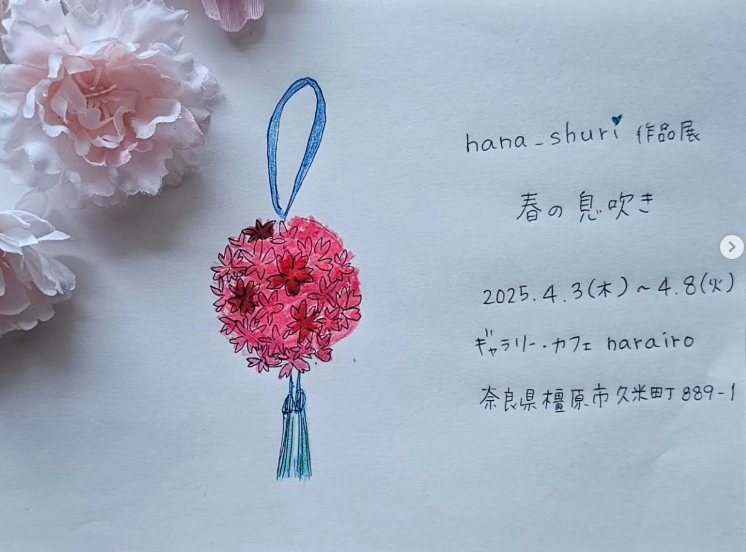 hana_shuri 作品展
春の息吹き
2025.4.3(木)～4.8(火)
ギャラリー・カフェ narairo
奈良県橿原市久米町889-1